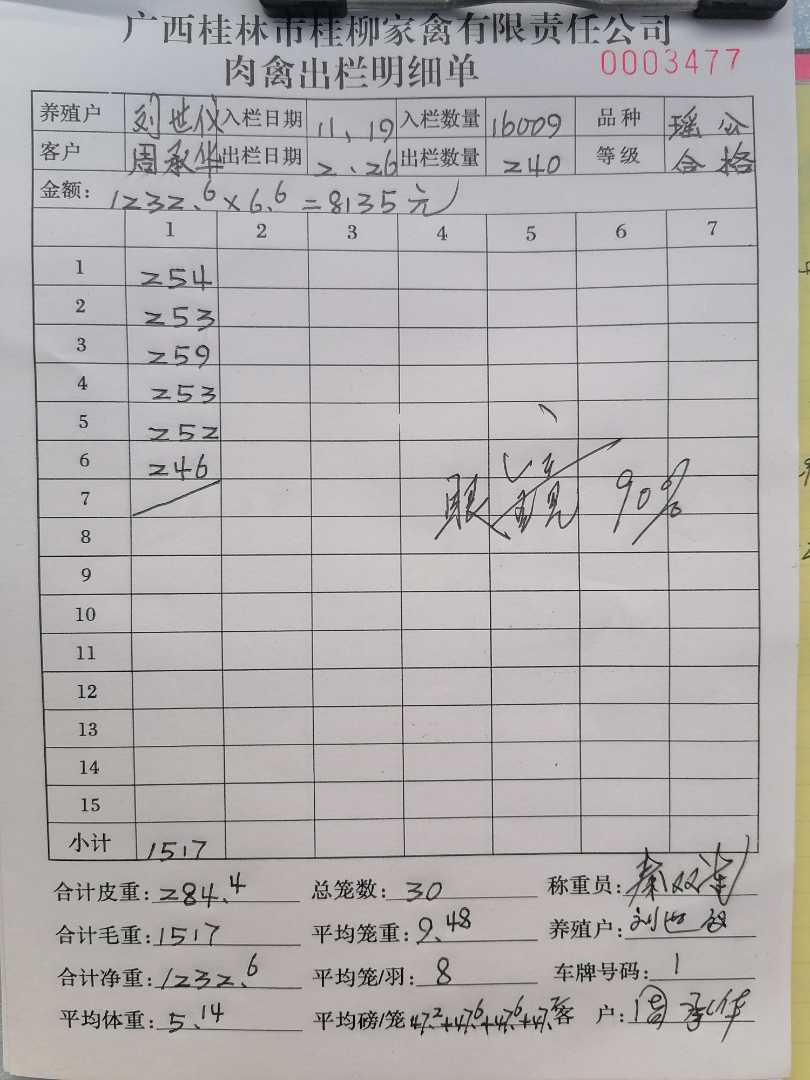 广西桂林市桂柳家禽有限责任公司
肉禽出栏明细单 0003477
养殖户 刘世仪 入栏日期 11、19 入栏数量 16009 品种 瑶公
客户 周承华 出栏日期 2、26 出栏数量 240 等级 合格
金额: 1232.6×6.6=8135元
1 2 3 4 5 6 7
1 254
2 253
3 259
4 253
5 252
6 246
7
8
9
10
11
12
13
14
15
小计 1517
合计皮重: 284.4 总笼数: 30 称重员:
合计毛重: 1517 平均笼重: 9.48 养殖户: 刘世仪
合计净重: 1232.6 平均笼/羽: 8 车牌号码: 1
平均体重: 5.14 平均磅/笼 47.2+47.6+47.6+47. 客 户: 周承华
90%